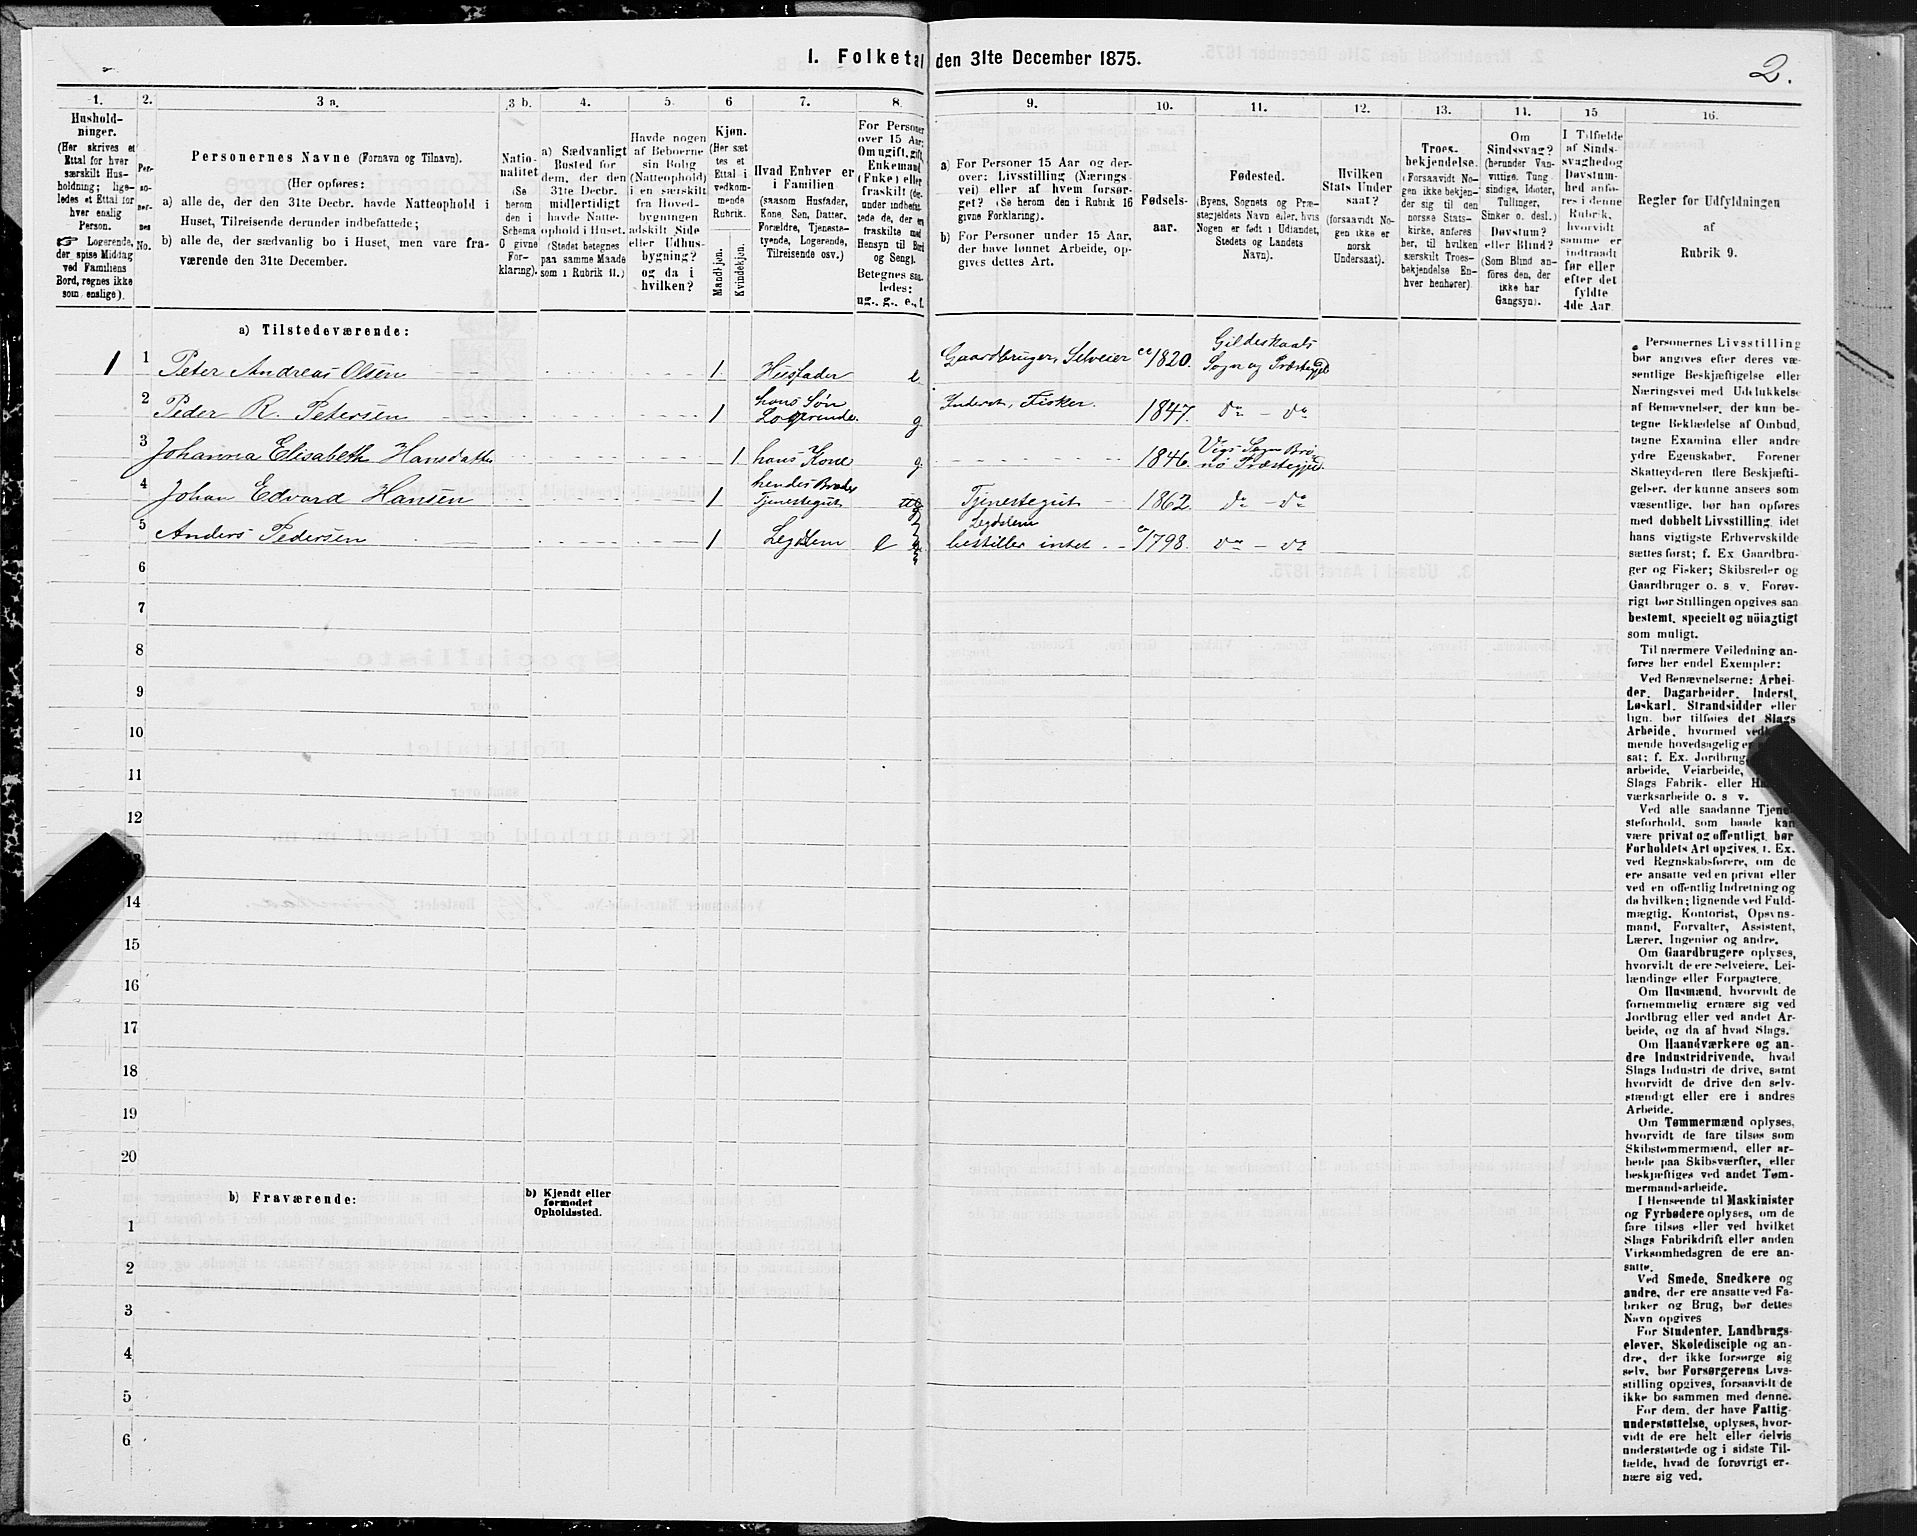 1. Folketal den 31te December 1875.
2.
1.
2.
3 a.
3 b.
4.
5.
6
7.
8.
9.
10.
11.
12.
13.
14.
15
16.
Hushold-
ninger.
(Her skrives et
Ettal for hver
særskilt Hus-
holdning; lige-
ledes et Ettal for
hver enslig
Person.
☞ Logerende,
der spise Middag
ved Familiens
Bord, regnes ikke
som enslige).
Per-
so-
ner-
nes
No.
Personernes Navne (Fornavn og Tilnavn).
(Her opføres:
a) alle de, der den 31te Decbr. havde Natteophold i
Huset, Tilreisende derunder indbefattede;
b) alle de, der sædvanlig bo i Huset, men vare fra-
værende den 31te December.
Natio-
nalitet
(Se
herom
den i
Schema
C givne
For-
klaring).
a) Sædvanligt
Bosted for
dem, der den
31te Decbr.
midlertidigt
havde Natte-
ophold i Huset.
(Stedet betegnes
paa samme Maade
som i Rubrik 11.)
Havde nogen
af Beboerne
sin Bolig
(Natteophold)
i en særskilt
fra Hoved-
bygningen
adskilt Side
eller Udhus-
bygning?
og da i
hvilken?
Kjøn.
(Her sæt-
tes et
Ettal i
vedkom-
mende
Rubrik.
Mandkjøn.
Kvindekjøn.
Hvad Enhver er
i Familien
(saasom Husfader,
Kone, Søn, Datter,
Forældre, Tjeneste-
tyende, Logerende,
Tilreisende osv.)
For Personer
over 15 Aar:
Om ugift, gift,
Enkemand
(Enke) eller
fraskilt (der-
under indbefat-
tede de, der ere
fraskilte med
Hensyn til Bord
og Seng).
Betegnes saa-
ledes:
ug., g., e., f.
a) For Personer 15 Aar og der-
over: Livsstilling (Nærings-
vei) eller af hvem forsør-
get? (Se herom den i Rubrik 16
givne Forklaring).
b) For Personer under 15 Aar,
der have lønnet Arbeide, op-
gives dettes Art.
Fødsels-
aar.
Fødested.
(Byens, Sognets og Præ-
stegjeldets Navn eller, hvis
Nogen er født i Udlandet,
Stedets og Landets
Navn).
Hvilken
Stats Under
saat?
(forsaavidt No-
gen ikke er
norsk
Undersaat).
Troes-
bekjendelse.
(Forsaavidt No-
gen ikke bekjen-
der sig til den
norske Stats-
kirke, anføres
her, til hvilken
særskilt Troes-
bekjendelse En-
hver henhører)
Om
Sindssvag?
(herunder Van-
vittige, Tung
sindige, Idioter,
Tullinger,
Sinker o. desl.)
Døvstum?
eller Blind?
(Som Blind an-
føres den, der
ikke har
Gangsyn).
I Tilfælde
af Sinds-
svaghed og
Døvstum-
hed anfø-
res i denne
Rubrik,
hvorvidt
samme er
indtraadt
før eller
efter det
fyldte
4de Aar
Regler for Udfyldningen
af
Rubrik 9.
a) Tilstedeværende:
1 1 Peter Andreas Olsen 1. Husfader e. Gaardbruger, Selveier ca 1820. Gildeskaals
Sogn og Præstegjeld
2 Peder R. Petersen 1 hans Søn
Logerende. g. Inderst, Fisker. 1847. do - do
3 Johanna Elisabeth Hansdatter 1. hans Kone g. 1846. Vegs Sogn Brø-
nø Præstegjeld
4 Johan Edvard Hansen 1 hendes Broder
Tjenestegut Tjenestegut 1862. do - do
5 Anders Pedersen 1 Legdslem e Legdslem
bestiller intet ca 1798. do - do
6
7
8
9
10
11
12
14
15
16
17
18
19
20
b) Fraværende:
b) Kjendt eller
formodet
Opholdssted.
1
2
3
4
5
6
Personernes Livsstilling
bør angives efter deres væ-
sentlige Beskjæftigelse eller
Næringsvei med Udelukkelse
af Benævnelser, der kun be-
tegne Beklædelse af Ombud,
tagne Examina eller andre
ydre Egenskaber. Forener
Skatteyderen flere Beskjæfti-
gelser, der kunne ansees som
væsentlige, bør han opføres
med dobbelt Livsstilling, idet
hans vigtigste Erhvervskilde
sættes først; f. Ex Gaardbru-
ger og Fisker; Skibsreder og
Gaardbruger o. s v. Forøv-
rigt bør Stillingen opgives saa
bestemt, specielt og nöiagtigt
som muligt.
Til nærmere Veiledning an-
føres her endel Exempler:
Ved Benævnelserne: Arbei-
der, Dagarbeider, Inderst,
Løskarl, Strandsidder eller
lign. bør tilføies det Slags
Arbeide, hvormed
mende hovedsagelig er
sat; f. Ex. Jordbrug,
arbeide, Veiarbeide,
Slags Fabrik- eller
værksarbeide o. s v.
Ved alle saadanne
steforhold, som baade kan
være privat og offentligt, bør
Forholdets Art opgives, f. Ex.
ved Regnskabsførere, om de
ere ansatte ved en privat eller
ved en offentlig Indretning og
da hvilken; lignende ved Fuld-
mægtig, Kontorist, Opsyns-
mand, Forvalter, Assistent,
Lærer, Ingeniør og andre.
Om Gaardbrugere oplyses,
hvorvidt de ere Selveiere, Lei-
lændinge eller Forpagtere.
Om Husmænd, hvorvidt de
fornemmelig ernære sig ved
Jordbrug eller ved andet Ar-
beide, og da af hvad Slags.
Om Haandværkere og an-
dre Industridrivende, hvad
Slags Industri de drive, samt
hvorvidt de drive den selv-
stændigt eller ere i andres
Arbeide.
Om Tømmermænd oplyses,
hvorvidt de fare tilsøs som
Skibstømmermænd, eller ar-
beide paa Skibsværfter, eller
beskjæftiges ved andet Tøm-
mermandsarbeide.
I Henseende til Maskinister
og Fyrbødere oplyses, om de
fare tilsøs eller ved hvilket
Slags Fabrikdrift eller anden
Virksomhedsgren de ere an-
satte.
Ved Smede, Snedkere og
andre, der ere ansatte ved Fa-
briker og Brug, bør dettes
Navn opgives
For Studenter, Landbrugs-
elever, Skoledisciple og an-
dre, der ikke forsørge sig
selv, bør Forsørgerens Livs-
stilling opgives, forsaavidt de
ikke bo sammen med denne.
For dem, der have Fattig-
understøttelse, oplyses, hvor-
vidt de ere helt eller delvis
understøttede og i sidste Til-
fælde, hvad de forøvrigt er-
nære sig ved.